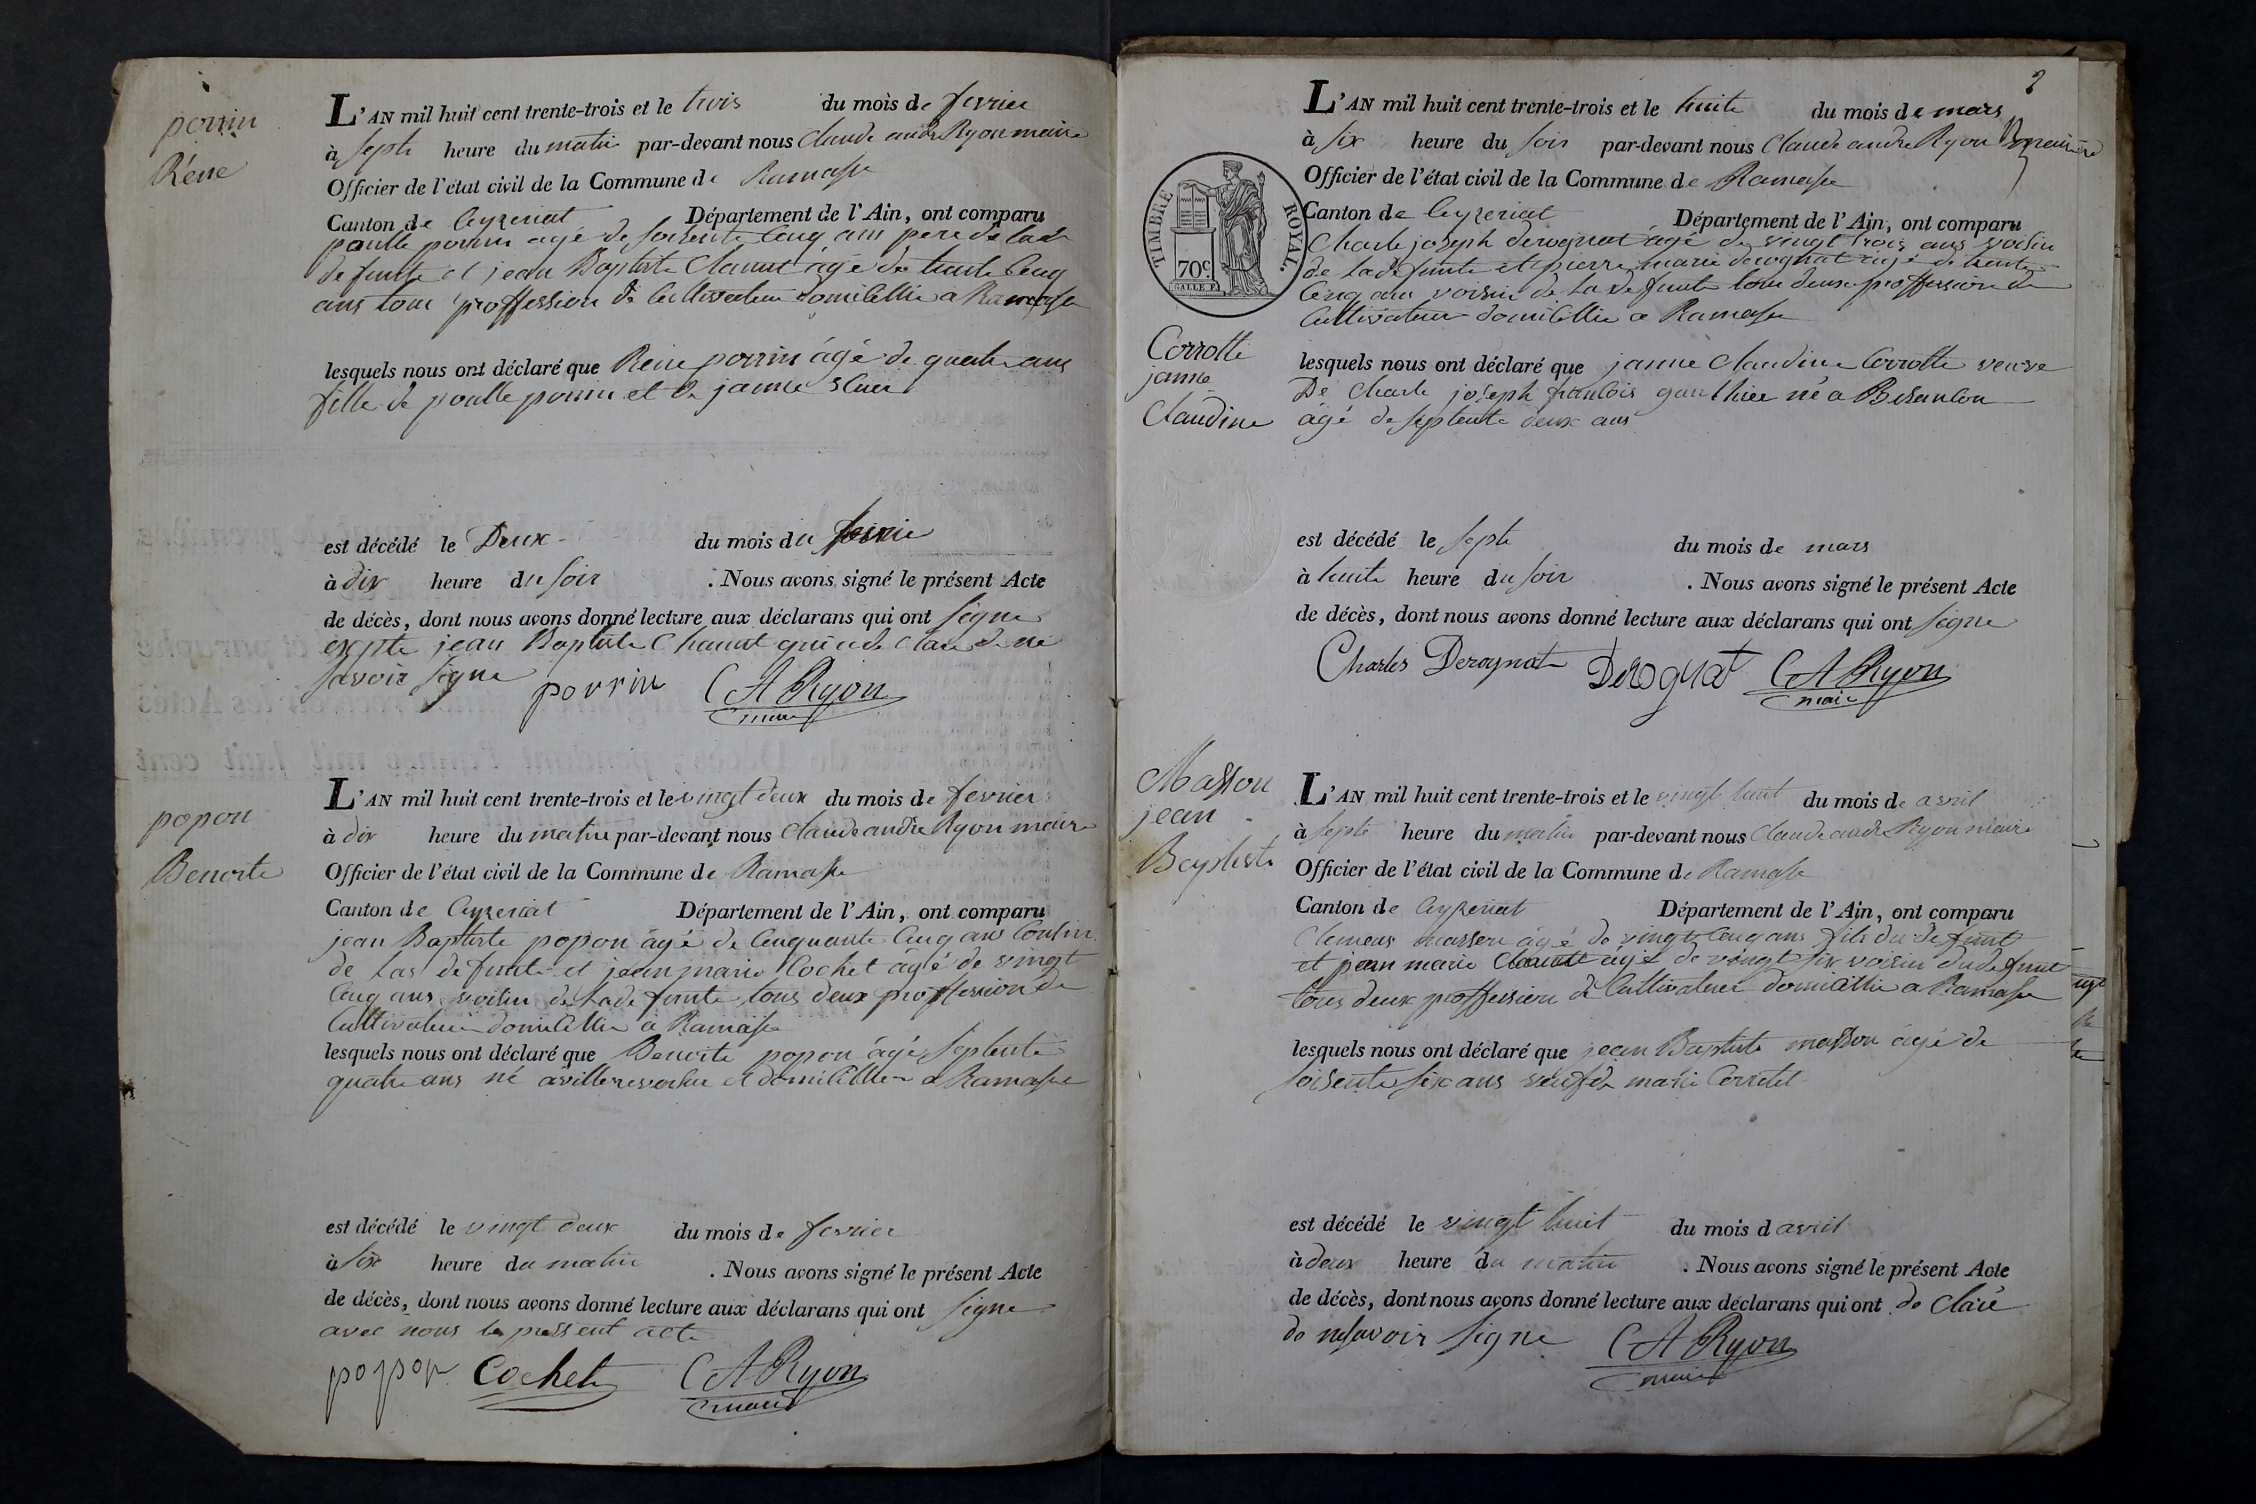 porrin
Réne
L'AN mil huit cent trente-trois et le trois du mois de fevrier
à septe heure du matin par-devant nous Claude andré Ryon maire
Officier de l'état civil de la Commune de Ramasse
Canton de Ceyzeriat Département de l'Ain, ont comparu
paulle porrin agé de soisente Cenq ans pere de lad
defunte et jean Baptiste Chanut âgé de trente Cenq
ans tous proffession de Cultivateur domicillié a Ramasse
lesquels nous ont déclaré que Reine porrin âgé de quatre ans
fille de poulle porrin et de janne
est décédé le Deux du mois du fevrie
à dix heure du soir . Nous avons signé le présent Acte
de décès, dont nous avons donné lecture aux déclarans qui ont signe
exspte jean Baptiste Chanut qui a de clare de ne
savoir signe
porrin CA Ryon
maire
popon
Benoite
L'AN mil huit cent trente-trois et le vingt deux du mois de fevrier
à dix heure du matin par-devant nous Claude andre Ryon maire
Officier de l'état civil de la Commune de Ramasse
Canton de Ceyzeriat Département de l'Ain, ont comparu
jean Baptiste popon âgé de Cenquante Cenq ans Cousin
de las defunte et jean marie Cochet âgé de vingt
Cenq ans voisin de la defunte tous deux proffession de
Cultivateur domicillie a Ramasse
lesquels nous ont déclaré que Benoite popon âgé septente
quatre ans né à villereversure et domicillier a Ramasse
est décédé le vingt deux du mois de fevrier
à six heure du matin . Nous avons signé le présent Acte
de décès, dont nous avons donné lecture aux déclarans qui ont signe
avec nous le pressent acte
popon Cochet CA Ryon
maire
2
L'AN mil huit cent trente-trois et le huite du mois de mars
à six heure du soir par-devant nous Claude andre Ryon maire
Officier de l'état civil de la Commune de Ramasse
Canton de Ceyzeriat Département de l'Ain, ont comparu
TIMBRE ROYAL.
70c.
Charle joseph derognat âgé de vingt trois ans voisin
de la defunte et pierre marie derognat âgé de trente
Cenq ans voisin de la defunte tous deux proffession de
Cultivateur domicillie a Ramasse
Corrotte
janne
Claudine
lesquels nous ont déclaré que janne Claudine Corrotte veuve
De Charle joseph francois gauthier né a Besancon
âgé de septente deux ans
est décédé le septe du mois de mars
à huite heure du soir . Nous avons signé le présent Acte
de décès, dont nous avons donné lecture aux déclarans qui ont signe
Charles Derognat Derognat CA Ryon
maire
Masson
jean
Baptiste
L'AN mil huit cent trente-trois et le vingt huit du mois de avril
à septe heure du matin par-devant nous Claude andre Ryon maire
Officier de l'état civil de la Commune de Ramasse
Canton de Ceyzeriat Département de l'Ain, ont comparu
Clemens masson âgé de vingt Cenq ans fils du defunt
et jean marie Chanut âgé de vingt six voisin du defunt
tous deux proffession de Cultivateur domicillie a Ramasse
lesquels nous ont déclaré que jean Baptiste masson âgé de
soisente six ans veuf de marie Corretel
est décédé le vingt huit du mois d avril
à deux heure du matin . Nous avons signé le présent Acte
de décès, dont nous avons donné lecture aux déclarans qui ont de Clare
de ne savoir signe CA Ryon
maire